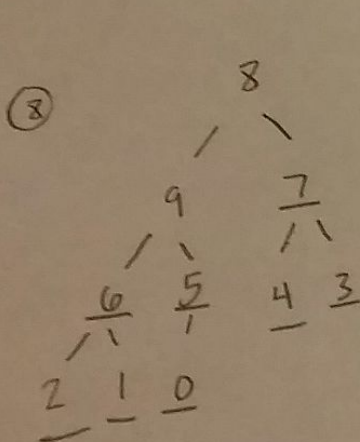 8
8
9 7
6 5 4 3
2 1 0